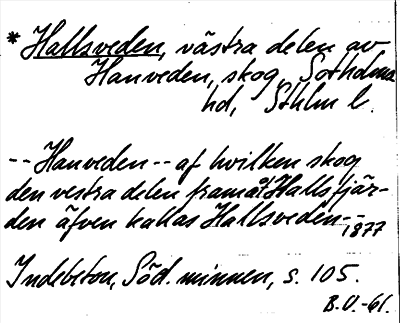 * Hallsveden, västra delen av
Hanveden, skog, Sotholms
hd, Sthlm l.
-- Hanveden -- af hvilken skog
den vestra delen framåt Hallsfjär-
den äfven kallas Hallsveden --
1877
Indebetou, Söd. minnen, s. 105.
B.U.-61.